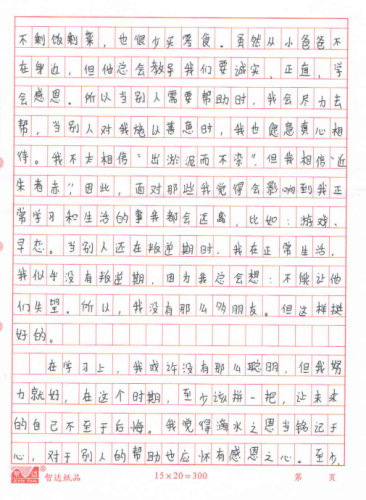 不剩饭剩菜，也很少买零食。虽然从小爸爸不
在身边，但他总会教导我们要诚实，正直，学
会感恩。所以当别人需要帮助时，我会尽力去
帮，当别人对我施以善意时，我也愿意真心相
待。我不太相信“出淤泥而不染”，但我相信“近
朱者赤”，因此，面对那些我觉得会影响到我正
常学习和生活的事我都会远离，比如：游戏、
早恋。当别人还在叛逆期时，我在正常生活，
我似乎没有叛逆期，因为我总会想：不能让他
们失望。所以，我没有那么多朋友。但这样挺
好的。
在学习上，我或许没有那么聪明，但我努
力就好，在这个时期，至少该拼一把，让未来
的自己不至于后悔。我觉得滴水之恩当铭记于
心，对于别人的帮助也应怀有感恩之心。至少
智达纸品 15×20=300 第 页